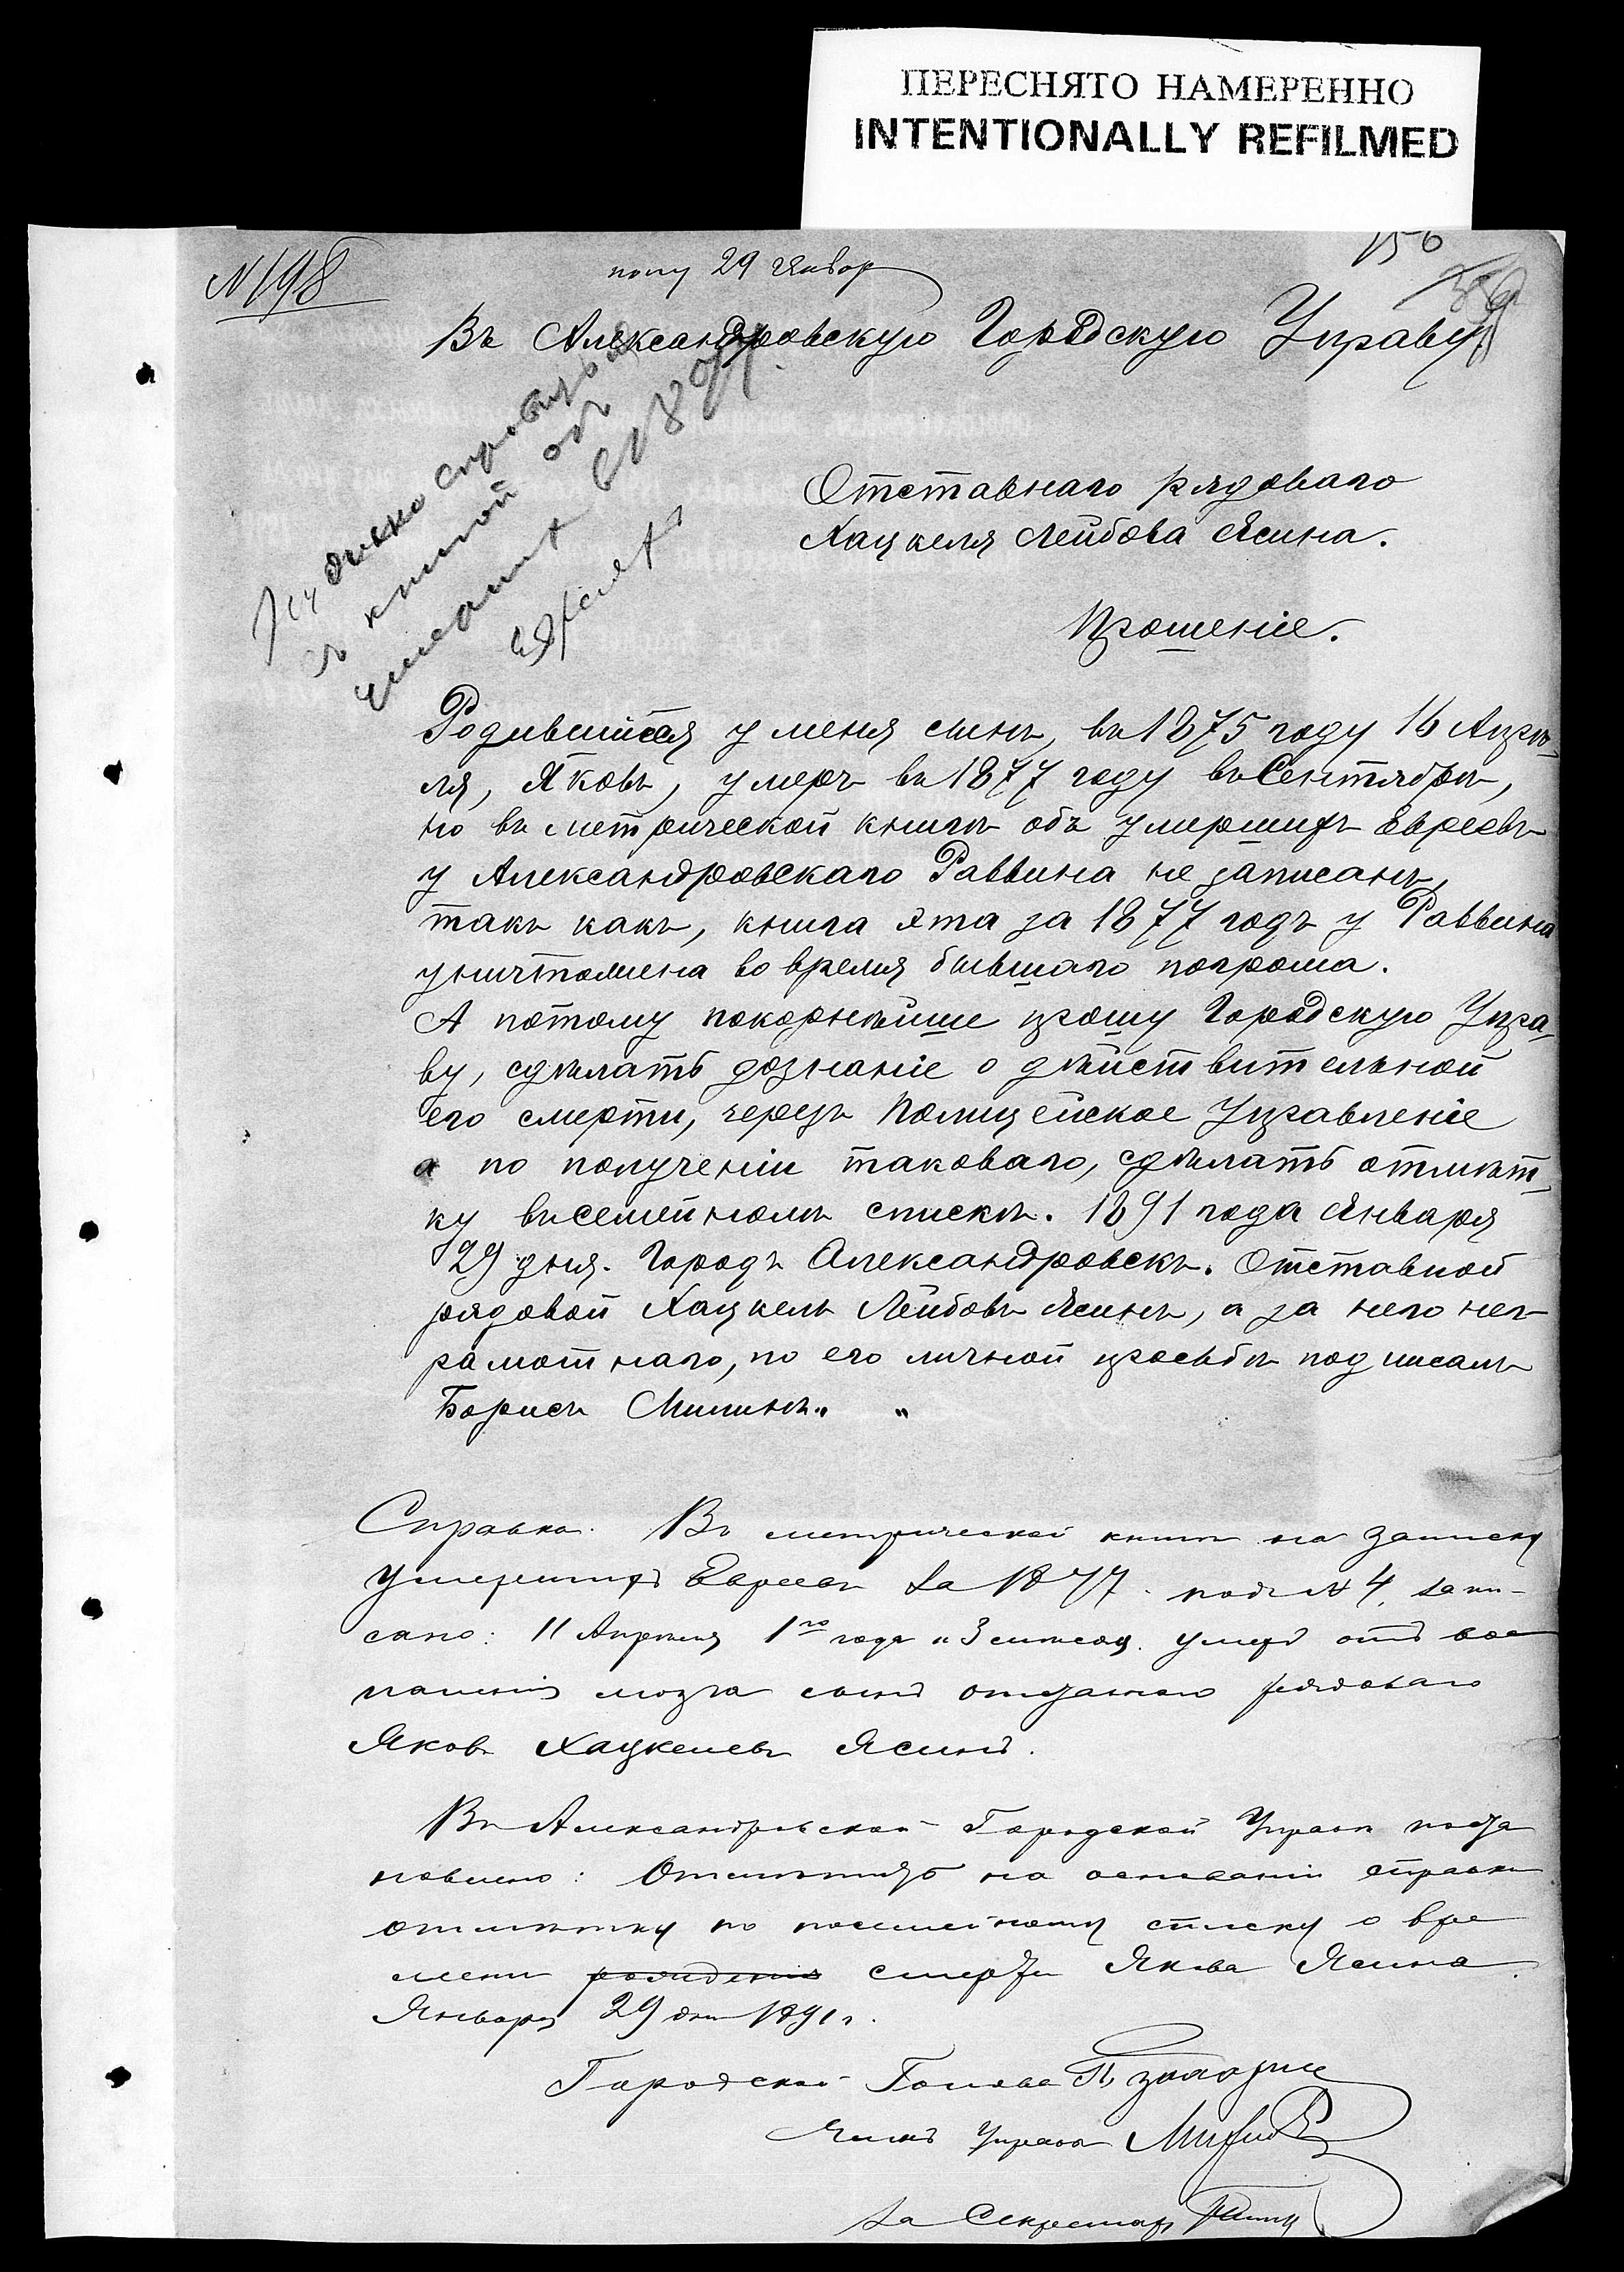 ПЕРЕСНЯТО НАМЕРЕННО
INTENTIONALLY REFILMED
156
N 198
полу 29 Январ
Въ Александровскую Городскую Управу.
съ книгой объ
умерших
Отставнаго рядоваго
Хацкеля Лейбова Ясина.
Прошеніе.
Родившійся у меня сынъ, въ 1875 году 16 Апрѣ-
ля, Яковъ, умеръ въ 1877 году въ Сентябрѣ,
но въ метрической книгѣ объ умершихъ Евреевъ
у Александровскаго Раввина не записанъ,
такъ какъ, книга эта за 1877 годъ у Раввина
уничтожена во время бывшаго погрома.
А потому покорнѣйше прошу Городскую Упра-
ву, сдѣлать дознаніе о дѣйствительной
его смерти, черезъ Полицейское Управленіе
а по полученіи таковаго, сдѣлать отмѣт-
ку въ семейномъ спискѣ. 1891 года Января
29 дня. Городъ Александровскъ. Отставной
рядовой Хацкель Лейбовъ Ясинъ, а за него нег-
рамотнаго, по его личной просьбѣ подписалъ
Борисъ Милинъ„ „
Справка. Въ метрической книгѣ на записку
умершихъ Евреевъ за 1877. подъ № 4, запи-
сано: 11 Апрѣля 1го года и 3 месяц. умеръ отъ вос
паленія мозга сынъ отставного рядоваго
Яковъ Хацкелевъ Ясинъ.
Въ Александровской Городской Управѣ поста
новлено: на основаніи справки
отмѣтку по посемейному списку о вре
мени рожденія смерти Якова Ясина.
Января 29 дня 1891 г.
Городской Голова
Членъ Управы
За Секретаря